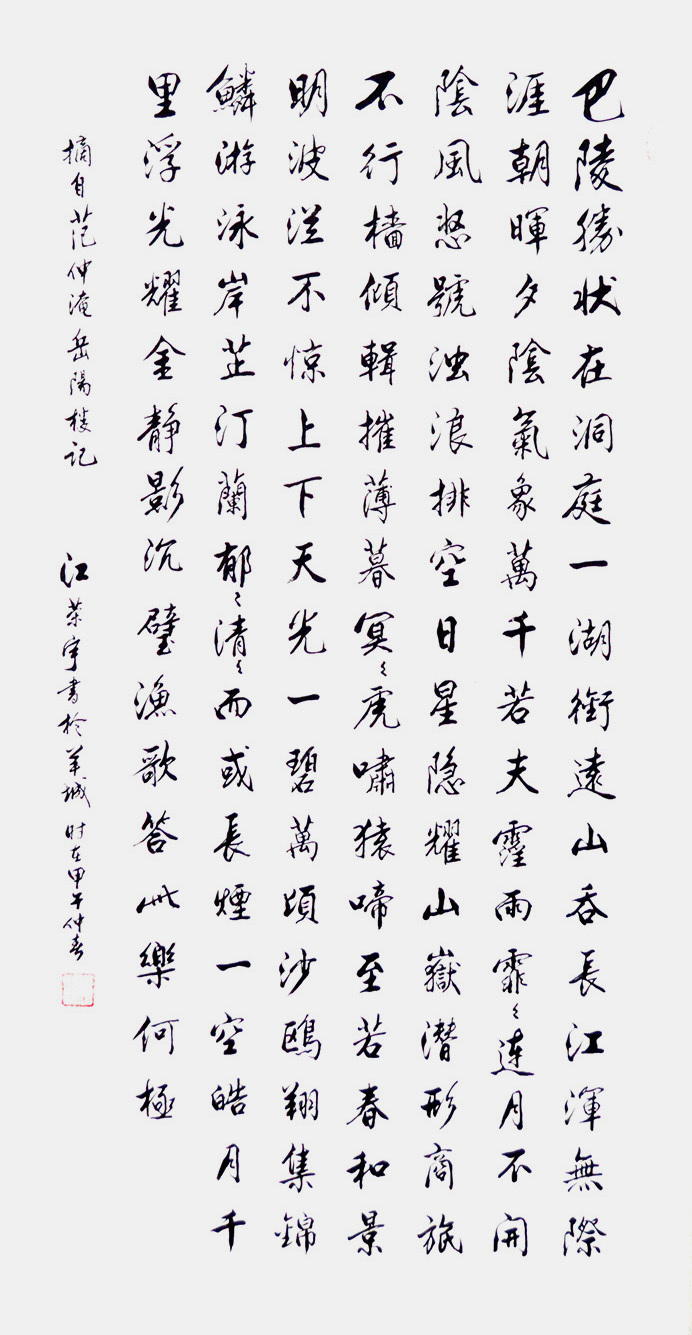 巴陵勝狀在洞庭一湖銜遠山吞長江渾無際
涯朝暉夕陰氣象萬千若夫霪雨霏〻連月不開
陰風怒號浊浪排空日星隐耀山嶽潛形商旅
不行檣傾輯摧薄暮冥〻虎嘯猿啼至若春和景
明波涇不惊上下天光一碧萬頃沙鷗翔集錦
鱗游泳岸芷汀蘭郁〻清〻而或長煙一空皓月千
里浮光耀金静影沉璧漁歌答此樂何極
摘自范仲淹岳陽楼记
江荣宇書於羊城时在甲午仲春